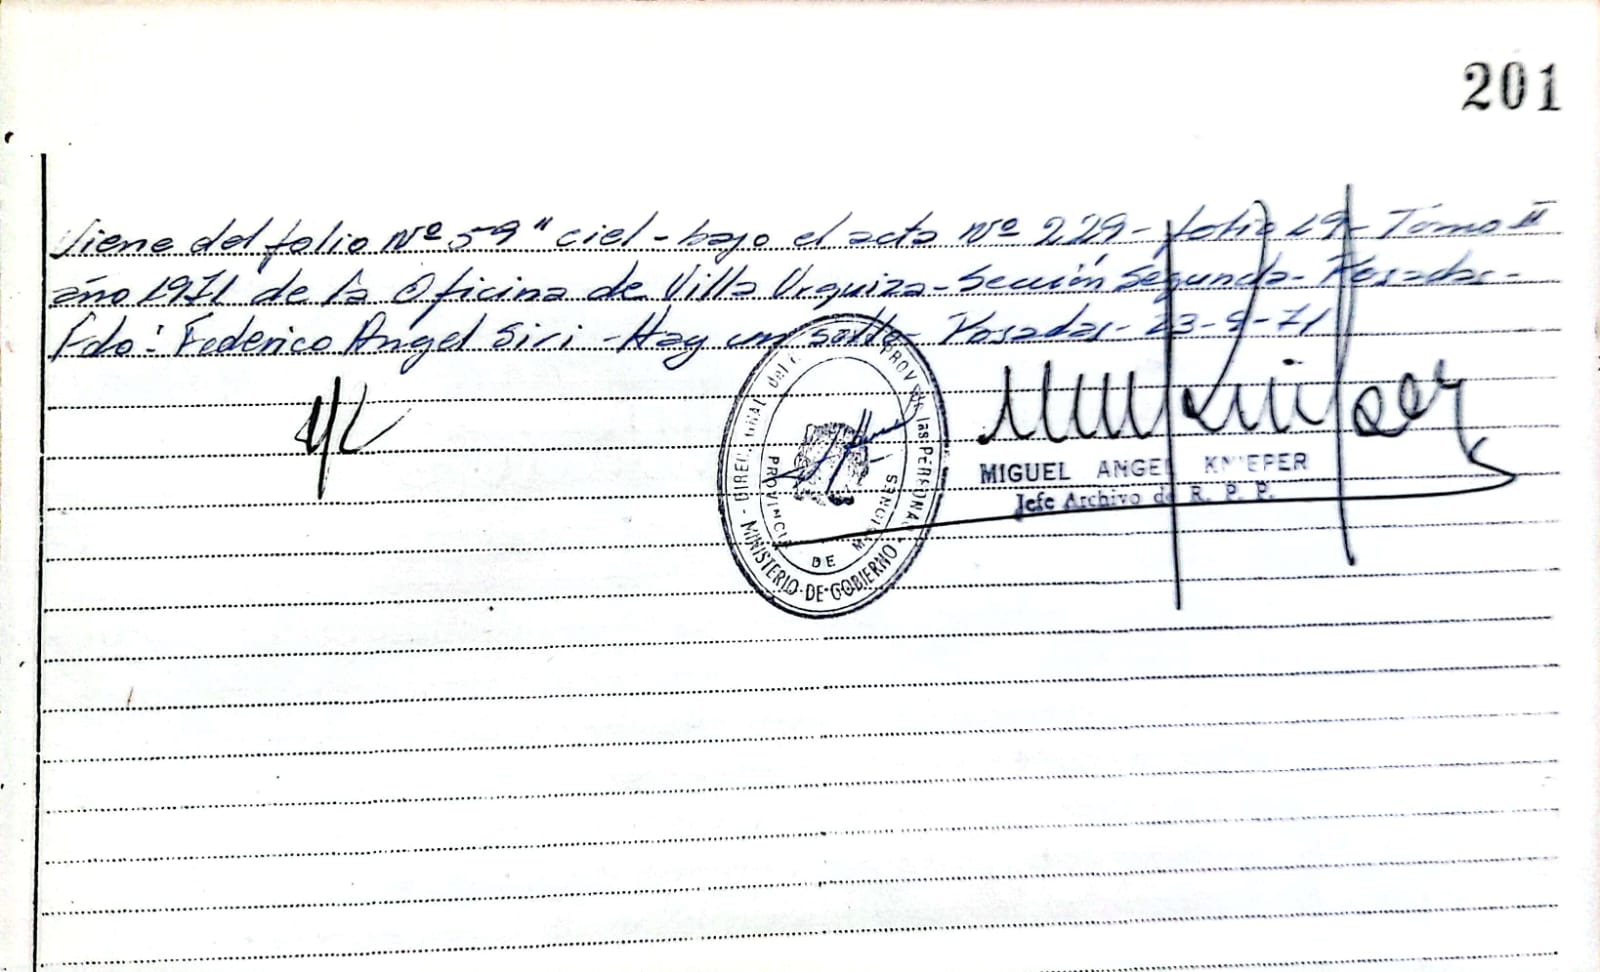 201
Viene del folio Nº 59" ciel - bajo el acta Nº 229 - folio 19 - Tomo II
año 1971 de la Oficina de Villa Urquiza - Sección Segunda - Posadas -
Fdo: Federico Angel Siri - Hay un sello - Posadas - 23-9-71
MIGUEL ANGEL KNIEPER
Jefe Archivo de R. P. P.
DIREC. GRAL del PROV de las PERSONAS
PROVINCIA DE MISIONES
MINISTERIO DE GOBIERNO